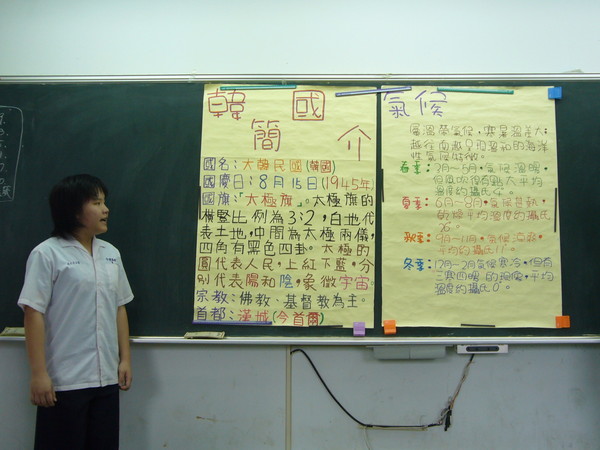 韓國
簡介
國名：大韓民國(韓國)
國慶日：8月15日(1945年)
國旗：「太極旗」。太極旗的
橫豎比例為3:2，白地代
表土地，中間為太極兩儀，
四角有黑色四卦。太極的
圓代表人民，上紅下藍，分
別代表陽和陰，象徵宇宙。
宗教：佛教、基督教為主。
首都：漢城(今首爾)
氣候
屬溫帶氣候，寒暑溫差大；
越往南越呈現溫和的海洋
性氣候特徵。
春季：3月~5月，氣候溫暖，
但風吹很有點大平均
溫度約攝氏
夏季：6月~8月，氣候
平均溫度約攝氏
秋季：9月~11月，氣候涼爽，
平均約攝氏
冬季：12月~2月氣候寒冷，但有
三寒四暖的現象，平均
溫度約攝氏0°。